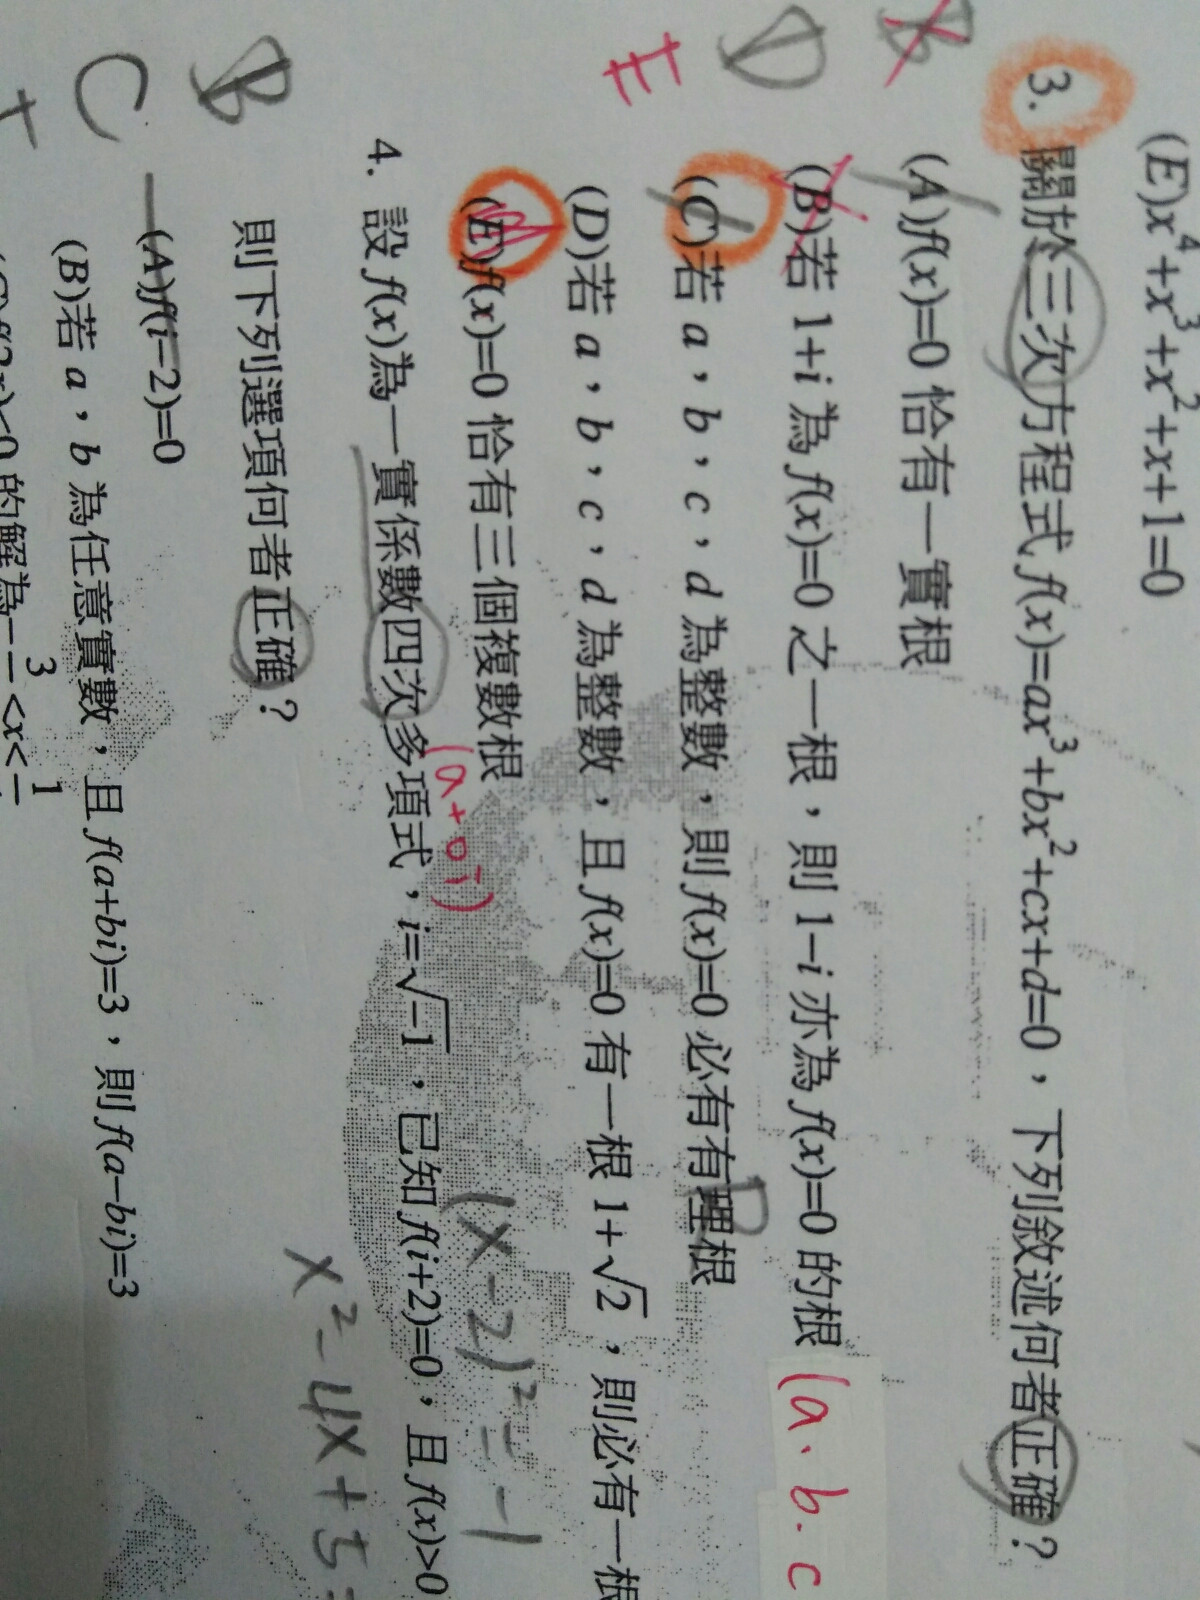 (E)x⁴+x³+x²+x+1=0
3. 關於三次方程式 f(x)=ax³+bx²+cx+d=0，下列敘述何者正確？
B
(A)f(x)=0 恰有一實根
D
(B)若 1+i 為 f(x)=0 之一根，則 1−i 亦為 f(x)=0 的根 (a.b.c
E
(C)若 a，b，c，d 為整數，則 f(x)=0 必有有理根
(D)若 a，b，c，d 為整數，且 f(x)=0 有一根 1+√2，則必有一根
(E)f(x)=0 恰有三個複數根
(a+0i)
(x-2)²=-1
4. 設 f(x)為一實係數四次多項式，i=√−1，已知 f(i+2)=0，且 f(x)>0
x²-4x+5=
B
則下列選項何者正確？
C
(A)f(i−2)=0
(B)若 a，b 為任意實數，且 f(a+bi)=3，則 f(a−bi)=3